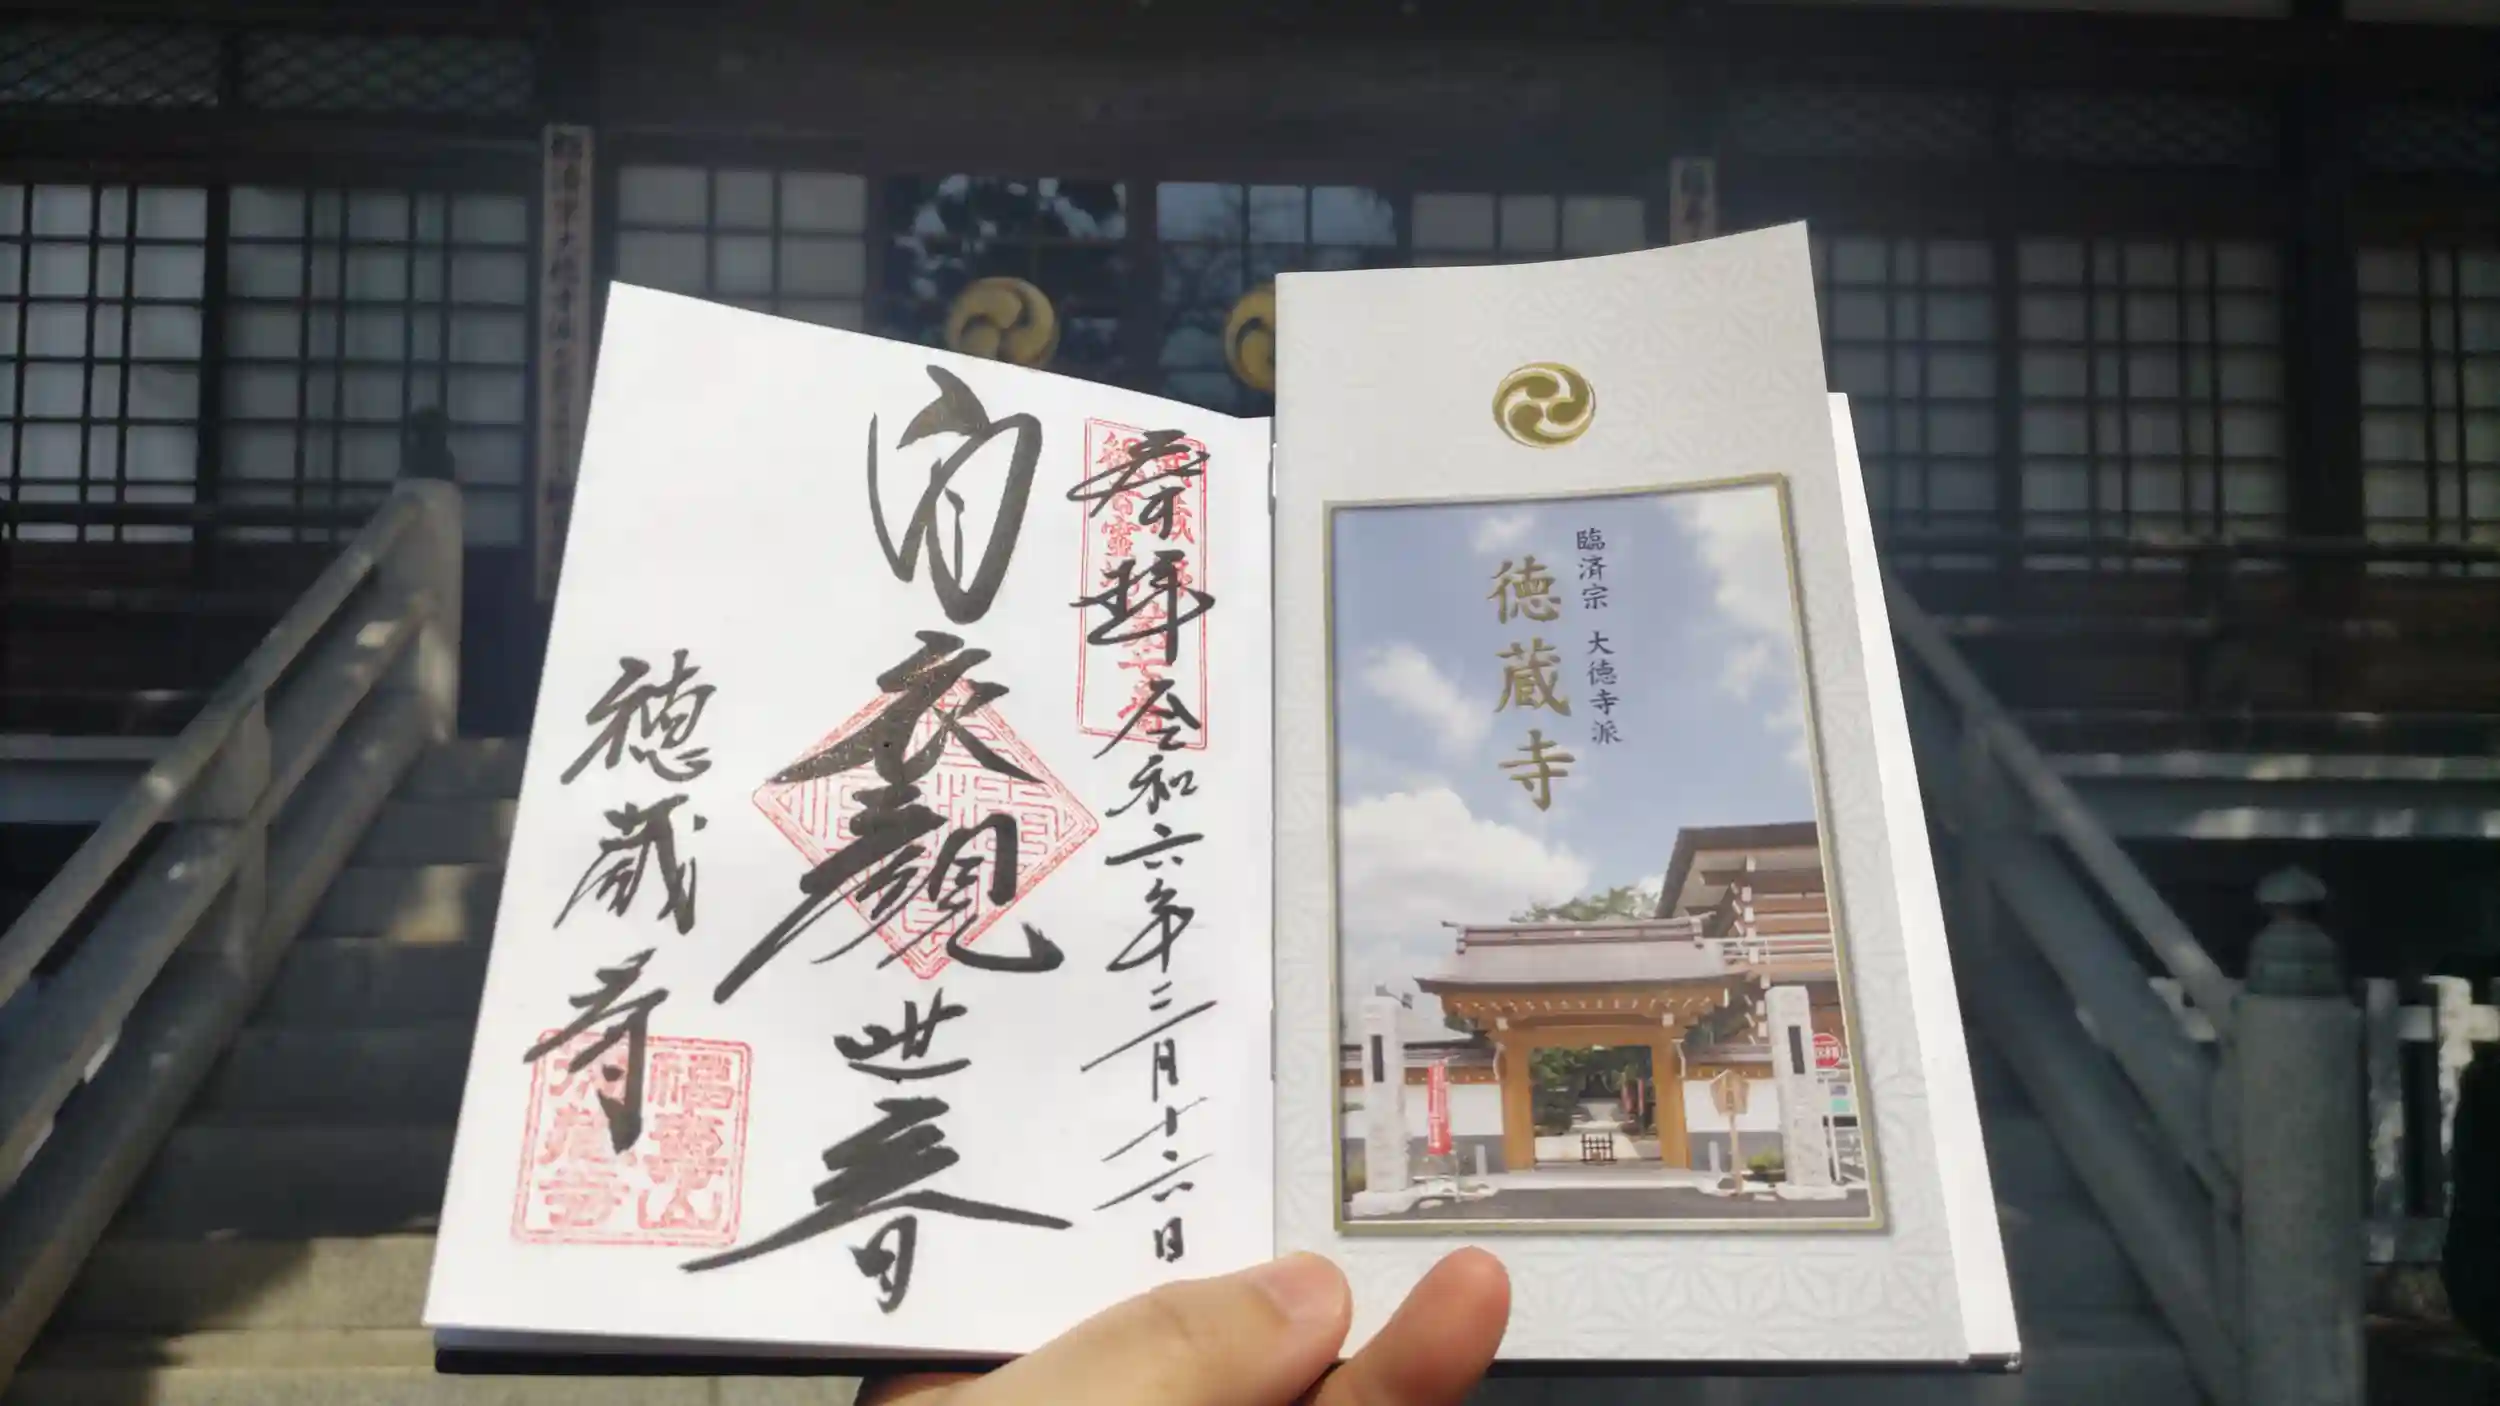 奉拝 令和六年三月十六日
白衣観世音
徳蔵寺
福壽山
臨済宗 大徳寺派
徳蔵寺